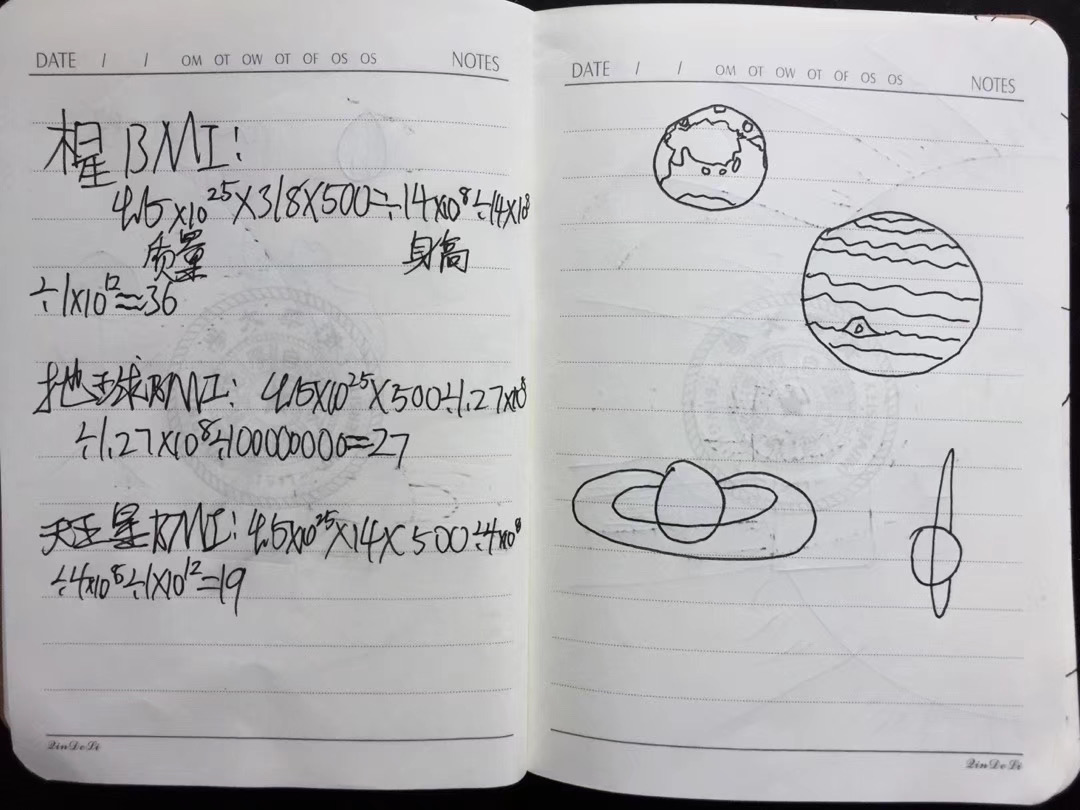 DATE / / OM OT OW OT OF OS OS NOTES
木星BMI:
4.15×10²⁵×318×500÷14×10⁸÷14×10⁸
质量 身高
÷1×10¹²≈36
地球BMI: 4.15×10²⁵×500÷1.27×10⁸
÷1.27×10⁸÷100000000=27
天王星BMI: 4.15×10²⁵×14×500÷4×10⁸
÷4×10⁸÷1×10¹²=19
QinDeLi
DATE / / OM OT OW OT OF OS OS NOTES
QinDeLi